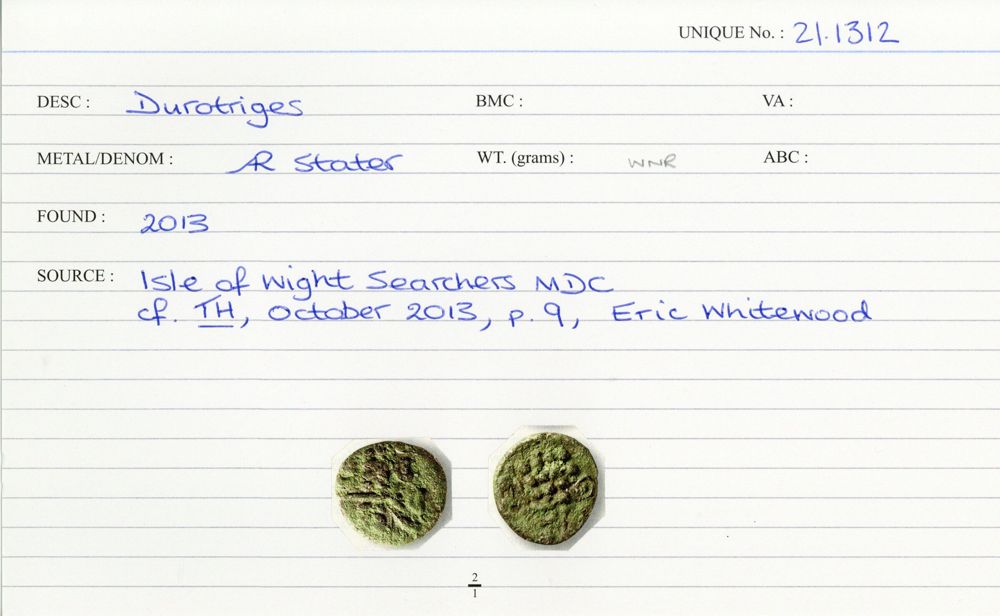 UNIQUE No. : 21.1312
DESC : Durotriges BMC : VA :
METAL/DENOM : AR Stater WT. (grams) : WNR ABC :
FOUND : 2013
SOURCE : Isle of Wight Searchers MDC
cf. TH, October 2013, p. 9, Eric Whitewood
2
1